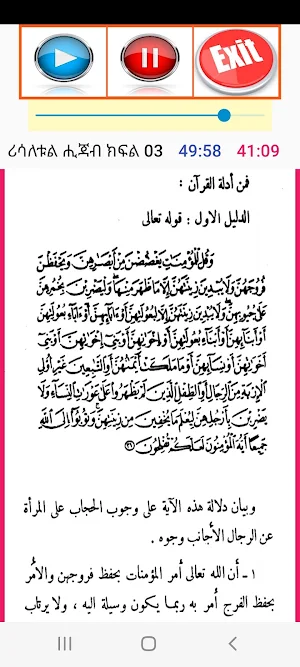 Exit
ሪሳለቱል ሒጃብ ክፍል 03 49:58 41:09
فمن أدلة القرآن :
الدليل الاول : قوله تعالى
وَقُل لِّلْمُؤْمِنَاتِ يَغْضُضْنَ مِنْ أَبْصَارِهِنَّ وَيَحْفَظْنَ
فُرُوجَهُنَّ وَلَا يُبْدِينَ زِينَتَهُنَّ إِلَّا مَا ظَهَرَ مِنْهَا وَلْيَضْرِبْنَ بِخُمُرِهِنَّ
عَلَىٰ جُيُوبِهِنَّ وَلَا يُبْدِينَ زِينَتَهُنَّ إِلَّا لِبُعُولَتِهِنَّ أَوْ ءَابَآئِهِنَّ أَوْ ءَابَآءِ بُعُولَتِهِنَّ
أَوْ أَبْنَآئِهِنَّ أَوْ أَبْنَآءِ بُعُولَتِهِنَّ أَوْ إِخْوَٰنِهِنَّ أَوْ بَنِىٓ إِخْوَٰنِهِنَّ أَوْ بَنِىٓ
أَخَوَٰتِهِنَّ أَوْ نِسَآئِهِنَّ أَوْ مَا مَلَكَتْ أَيْمَٰنُهُنَّ أَوِ ٱلتَّٰبِعِينَ غَيْرِ أُو۟لِى
ٱلْإِرْبَةِ مِنَ ٱلرِّجَالِ أَوِ ٱلطِّفْلِ ٱلَّذِينَ لَمْ يَظْهَرُوا۟ عَلَىٰ عَوْرَٰتِ ٱلنِّسَآءِ وَلَا
يَضْرِبْنَ بِأَرْجُلِهِنَّ لِيُعْلَمَ مَا يُخْفِينَ مِن زِينَتِهِنَّ وَتُوبُوٓا۟ إِلَى ٱللَّهِ
جَمِيعًا أَيُّهَ ٱلْمُؤْمِنُونَ لَعَلَّكُمْ تُفْلِحُونَ ٣١
وبيان دلالة هذه الآية على وجوب الحجاب على المرأة
عن الرجال الأجانب وجوه .
١ ـ أن الله تعالى أمر المؤمنات بحفظ فروجهن والأمر
بحفظ الفرج أمر به ربما يكون وسيلة اليه ، ولا يرتاب